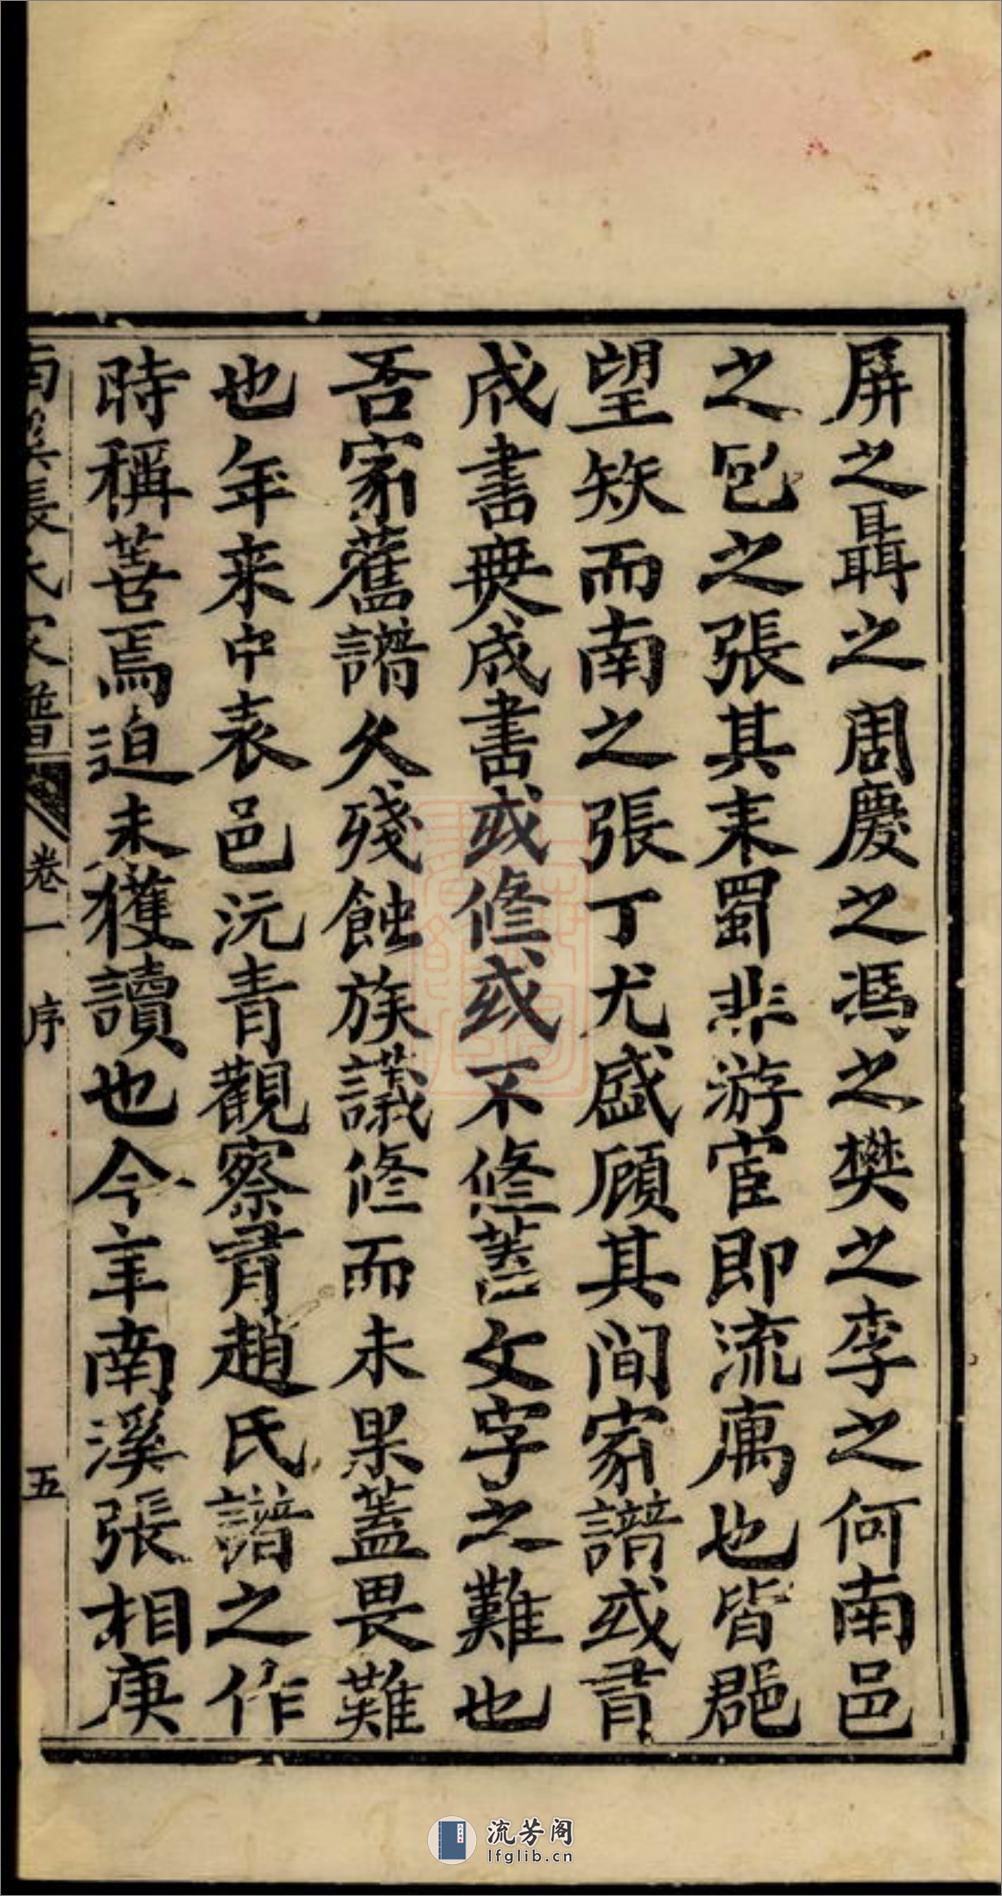 屏之聶之周慶之馮之樊之李之何南邑
之包之張其来蜀非游宦即流寓也皆郡
望矣而南之張丁尤盛顧其间家譜或有
成書無成書或修或不修蓋文字之難也
吾家舊譜久殘蝕族議修而未果蓋畏難
也年来中表邑沅青觀察有趙氏譜之作
時稱善焉迫未獲讀也今年南溪張相庚
南溪張氏家譜 卷一 序 五
流芳阁
lfglib.cn